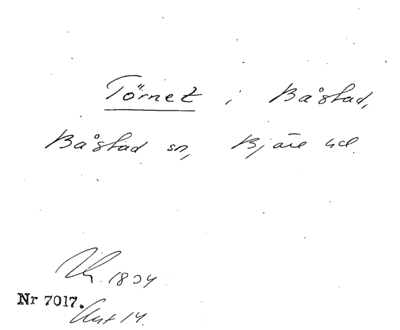 Törnet i Båstad,
Båstad sn, Bjäre hd.
1804
Nr 7017.
Aut 14.